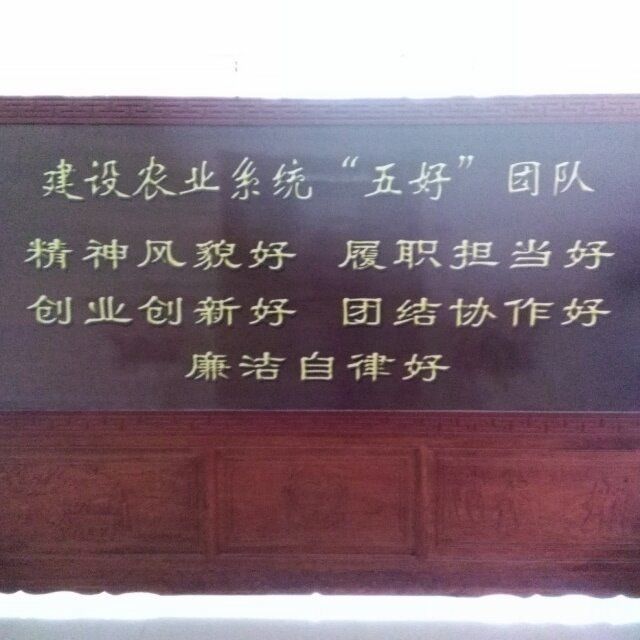 建设农业系统“五好”团队
精神风貌好 履职担当好
创业创新好 团结协作好
廉洁自律好